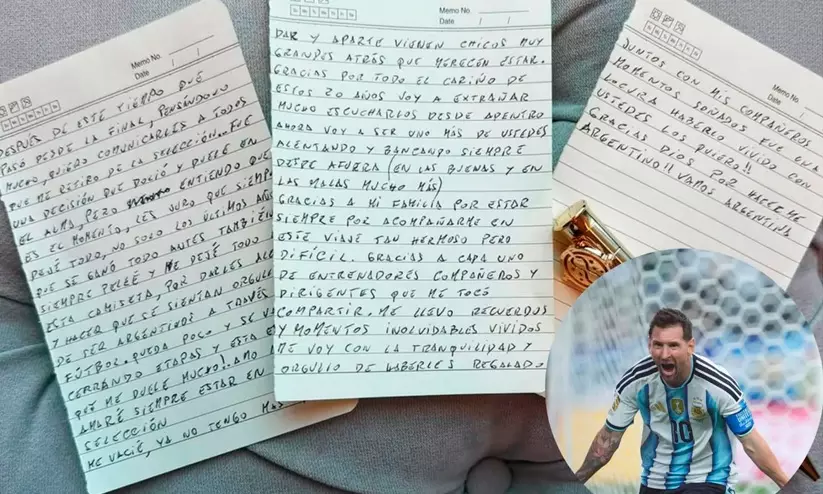 Memo No.
Date / /
DESPUÉS DE ESTE TIEMPO QUE
PASÓ DESDE LA FINAL, PENSÁNDOLO
MUCHO, QUIERO COMUNICARLES A TODOS
QUE ME RETIRO DE LA SELECCIÓN. FUE
UNA DECISIÓN QUE DOLIÓ Y DUELE EN
EL ALMA, PERO ENTIENDO QUE
ES EL MOMENTO, LES JURO QUE SIEMPRE
DEJÉ TODO, NO SOLO LOS ÚLTIMOS
QUE SE GANÓ TODO ANTES TAMBIÉN
SIEMPRE PELEÉ Y ME DEJÉ TODO
ESTA CAMISETA, POR DARLES
Y HACER QUE SE SIENTAN
DE SER ARGENTINOS A TRAVÉS
FÚTBOL. QUEDA POCO Y SE VA
CERRANDO ETAPAS Y ESTA
QUE ME DUELE MUCHO! AMO
AMARÉ SIEMPRE ESTAR EN
SELECCIÓN
ME VACIÉ, YA NO TENGO MÁS
Memo No.
Date / /
DAR Y APARTE VIENEN CHICOS MUY
GRANDES ATRÁS QUE MERECEN ESTAR.
GRACIAS POR TODO EL CARIÑO DE
ESTOS 20 AÑOS VOY A EXTRAÑAR
MUCHO ESCUCHARLOS DESDE ADENTRO
AHORA VOY A SER UNO MÁS DE USTEDES
ALENTANDO Y BANCANDO SIEMPRE
DESDE AFUERA (EN LAS BUENAS Y EN
LAS MALAS MUCHO MÁS)
GRACIAS A MI FAMILIA POR ESTAR
SIEMPRE POR ACOMPAÑARME EN
ESTE VIAJE TAN HERMOSO PERO
DIFÍCIL. GRACIAS A CADA UNO
DE ENTRENADORES COMPAÑEROS Y
DIRIGENTES QUE ME TOCÓ
COMPARTIR. ME LLEVO RECUERDOS
Y MOMENTOS INOLVIDABLES VIVIDOS
ME VOY CON LA TRANQUILIDAD Y
ORGULLO DE HABERLES REGALADO
Memo No.
Date / /
JUNTOS CON MIS COMPAÑEROS
MOMENTOS SOÑADOS FUE UNA
LOCURA HABERLO VIVIDO CON
USTEDES LOS QUIERO!!
GRACIAS DIOS POR HACERME
ARGENTINO!! VAMOS ARGENTINA
10